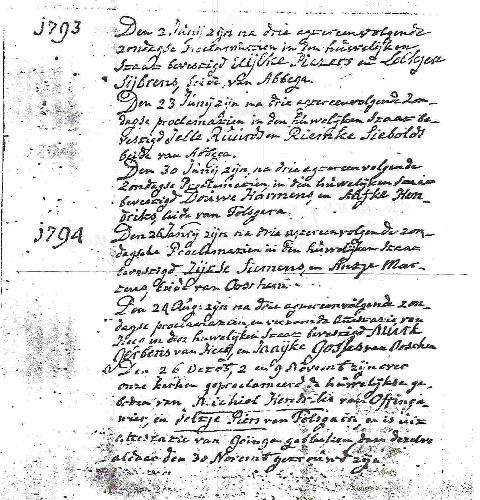 1793
Den 2 Junij zijn na drie agtereenvolgende
zondagse Proclamatien in den huwelijken
staat bevestigd en
Sijbrens, beide van Abbega.
Den 23 Junij zijn na drie agtereenvolgende zon-
dagse proclamatien in den huwelijken staat be-
vestigd Jelle Ruurds en Riemke Siebolds
beide van Abbega.
Den 30 Junij zijn, na drie agtereenvolgende
zondagse Proclamatien in den huwelijken staat
bevestigd Douwe Harmens en Aafke Hen-
driks, beide van Folsgera.
1794
Den Janrij zijn na drie agtereenvolgende zon-
dagsche Proclamatien in den huwelijken staat
bevestigd, Siemens, en Antje Mar-
tens, beide van Oosthem.
Den 24 Aug: zijn na drie agtereenvolgende zon-
dagse proclamatien, en vertoonde attestatie van
Heeg in den huwelijken staat bevestigd Murk
Gerbens van Heeg, en Gosses van Oosthem
Den 26 Octob, 2 en 9 Novemb zijn over
onze kerken geproclameerd de huwelijkse ge-
boden van Michiel van Offinga-
wier, en Piers van Folsgara, en is uit
attestatie van gebleken, dan dezelve
aldaar den 30 Novemb getrouwd zijn.